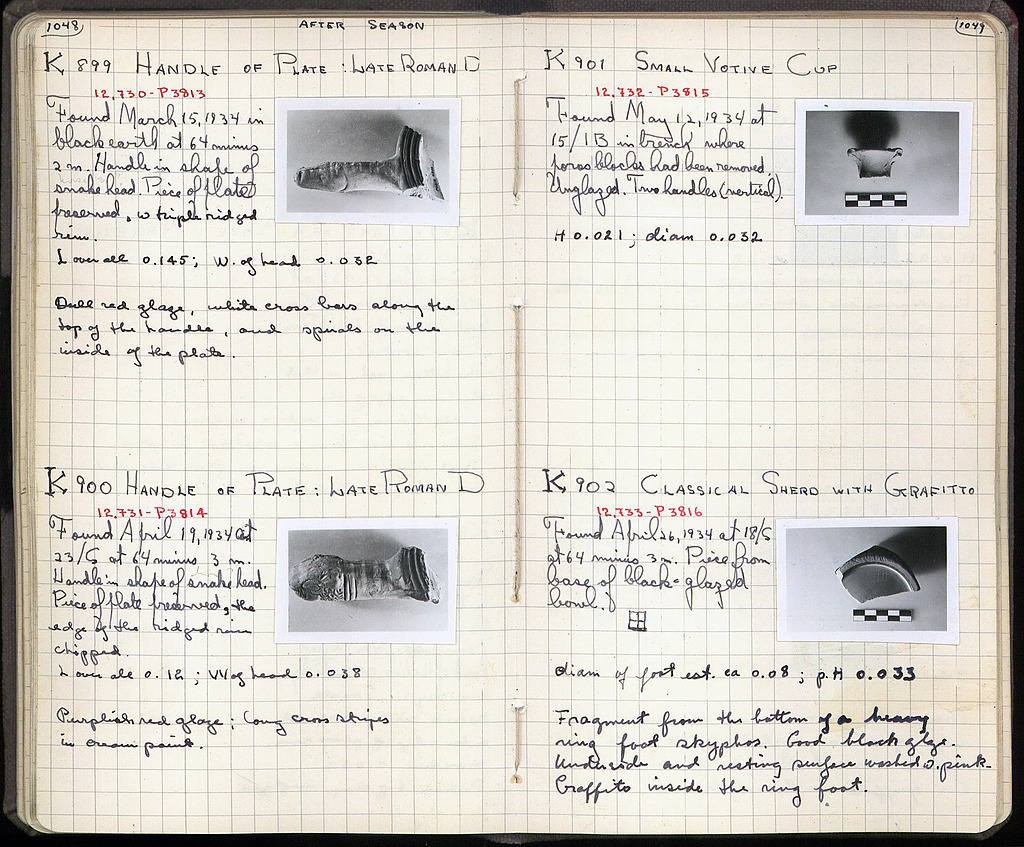 1048
AFTER SEASON
K 899 HANDLE OF PLATE : LATE ROMAN D
12,730 - P 3813
Found March 15, 1934 in
black earth at 64 minus
2 m. Handle in shape of
snake head. Piece of plate
preserved, w triple ridged
rim.
L over all 0.145; W. of head 0.032
Dull red glaze, white cross bars along the
top of the handle, and spirals on the
inside of the plate.
K 900 HANDLE OF PLATE : LATE ROMAN D
12,731 - P 3814
Found April 19, 1934 at
23/S at 64 minus 3 m.
Handle in shape of snake head.
Piece of plate preserved, the
edge of the ridged rim
chipped.
L over all 0.12 ; W of head 0.038
Purplish red glaze ; long cross stripes
in cream paint.
1049
K 901 SMALL VOTIVE CUP
12,732 - P 3815
Found May 12, 1934 at
15/IB in trench where
poros blocks had been removed.
Unglazed. Two handles (vertical).
H 0.021 ; diam 0.032
K 902 CLASSICAL SHERD WITH GRAFITTO
12,733 - P 3816
Found April 26, 1934 at 18/S
at 64 minus 3 m. Piece from
base of black-glazed
bowl.
diam of foot est. ca 0.08 ; p. H 0.033
Fragment from the bottom of a heavy
ring foot skyphos. Good black glaze.
Underside and resting surface washed w. pink.
Graffito inside the ring foot.